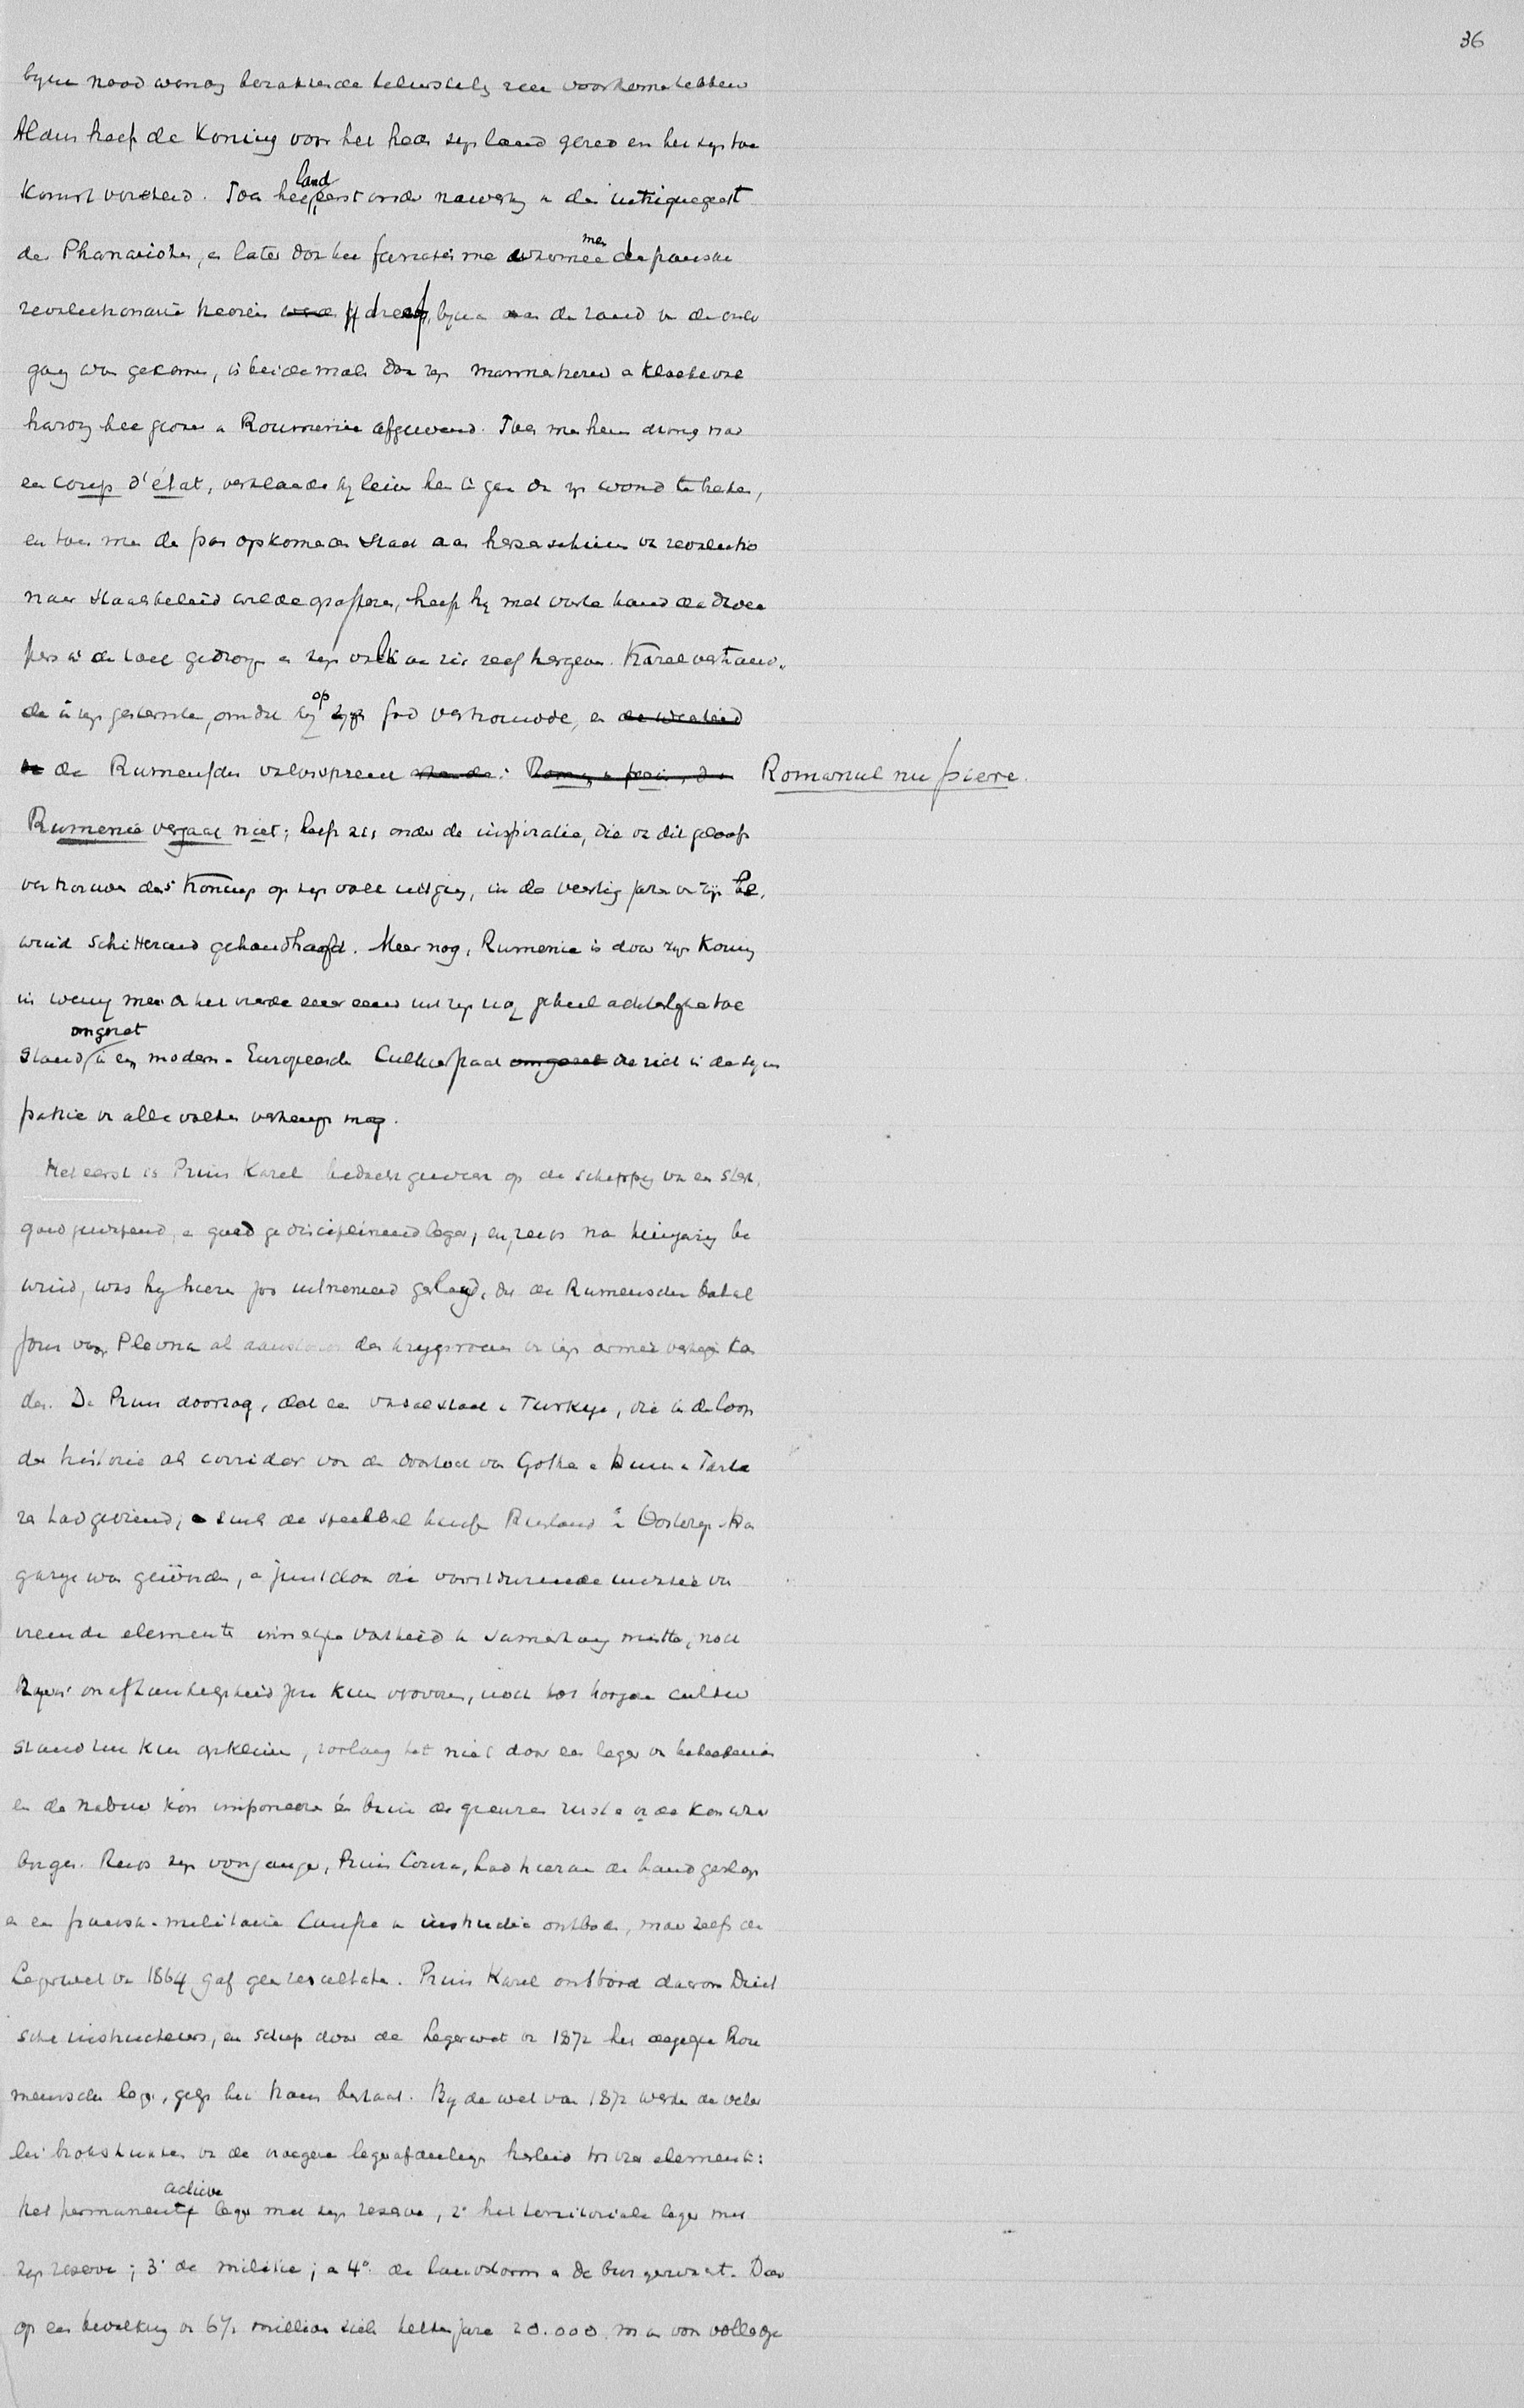 36
Aldus heeft de Koning voor het heden zijn land gered en het zijn toe
komst verzekerd. Toen het land, eerst onder nawerking van den intriguegeest
der Phanarioten, en later door het fanatisme waarmee men de fransche
revolutionaire theorieën dreef, bijna aan de rand van de onder
gang was gekomen, is beidemale door zijn
Roumenië afgewend. Toen men hem drong naar
een coup d'état, verklaarde hij liever heen te gaan dan zijn woord te breken,
en toen men de pas opkomende Staat aan hersenschimmen van revolutio
nair staatsbeleid wilde opofferen, heeft hij met vaste hand de
in de hoek gedrongen en zijn volk aan zich zelf hergeven. Karel
de in zijn gesternte, omdat hij op zijn God vertrouwde, en de
de Rumeensche volksspreuk : Romanul nu piere.
Rumenië vergaat niet; heeft zich onder de inspiratie, die van dit geloof
vertrouwen des Konings op zijn volk uitging, in de veertig jaren van zijn be.
wind schitterend gehandhaafd. Meer nog, Rumenië is door zijn Koning
in weinig meer dan het vierde eener eeuw uit zijn nog geheel achterlijken toe
stand omgezet in een modern-Europeesche Cultuurstaat omgezet die zich in de sym
pathie van alle volken verheugen mag.
Het eerst is Prins Karel bedacht geweest op de schepping van een sterk,
goed gewapend, en goed gedisciplineerd leger, en reeds na tienjarig be
wind, was hij hierin zoo uitnemend geslaagd, dat de Rumeensche batal
jons voor Plevna al aanstonds den krijgsroem van zijn armee vestigen kon
den. De Prins doorzag, dat een vasalstaat van Turkije, die in de loop
der historie als corridor voor de doortocht van Gothen en Hunnen en Tarta
ren had gediend, en sinds de speelbal tusschen Rusland en Oostenrijk-Hon
garije was geworden, en juist door die voortdurende invasie van
vreemde elementen innerlijke vastheid en samenhang miste, noch
zijn onafhankelijkheid zou kunnen veroveren, noch tot hoogere cultuur
stand zou kunnen opklimmen, zoolang het niet door een leger van beteekenis
en de nabuur kon imponeeren én binnen de grenzen rust en orde kon waar
borgen. Reeds zijn voorganger, Prins Couza, had hieraan de hand geslagen
en een fransch-militaire Coupe en instructie ontboden, maar zelfs de
Legerwet van 1864 gaf geen resultaten. Prins Karel ontbood daarom Duit
sche instructeurs, en schiep door de Legerwet van 1872 het degelijke Rou
meensche leger, gelijk het thans bestaat. Bij de wet van 1872 werden de veler
lei brokstukken van de vroegere legerafdeelingen herleid tot vier elementen:
het permanente active leger met zijn reserve, 2° het territoriale leger met
zijn reserve; 3° de militie; en 4° de landstorm en de burgerwacht. Daar
op een bevolking van 6½ millioen ziels elk jaar 20.000 man van volledige